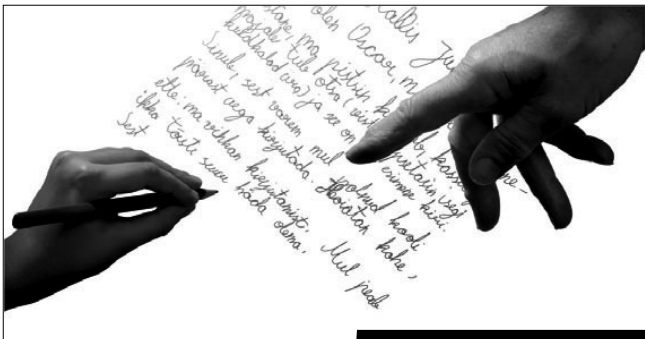 Kallis Ju
olen Oscar, m
ma pistsin
majale tule otsa (vist isegi
kuldkalad ära) ja see on esimene kiri.
Sinule, sest varem mul polnud kooli
pärast aega kirjutada. Hoiatan kohe,
ette: ma vihkan kirjutamist. Mul peab
ikka tõeste suur häda olema.
Sest